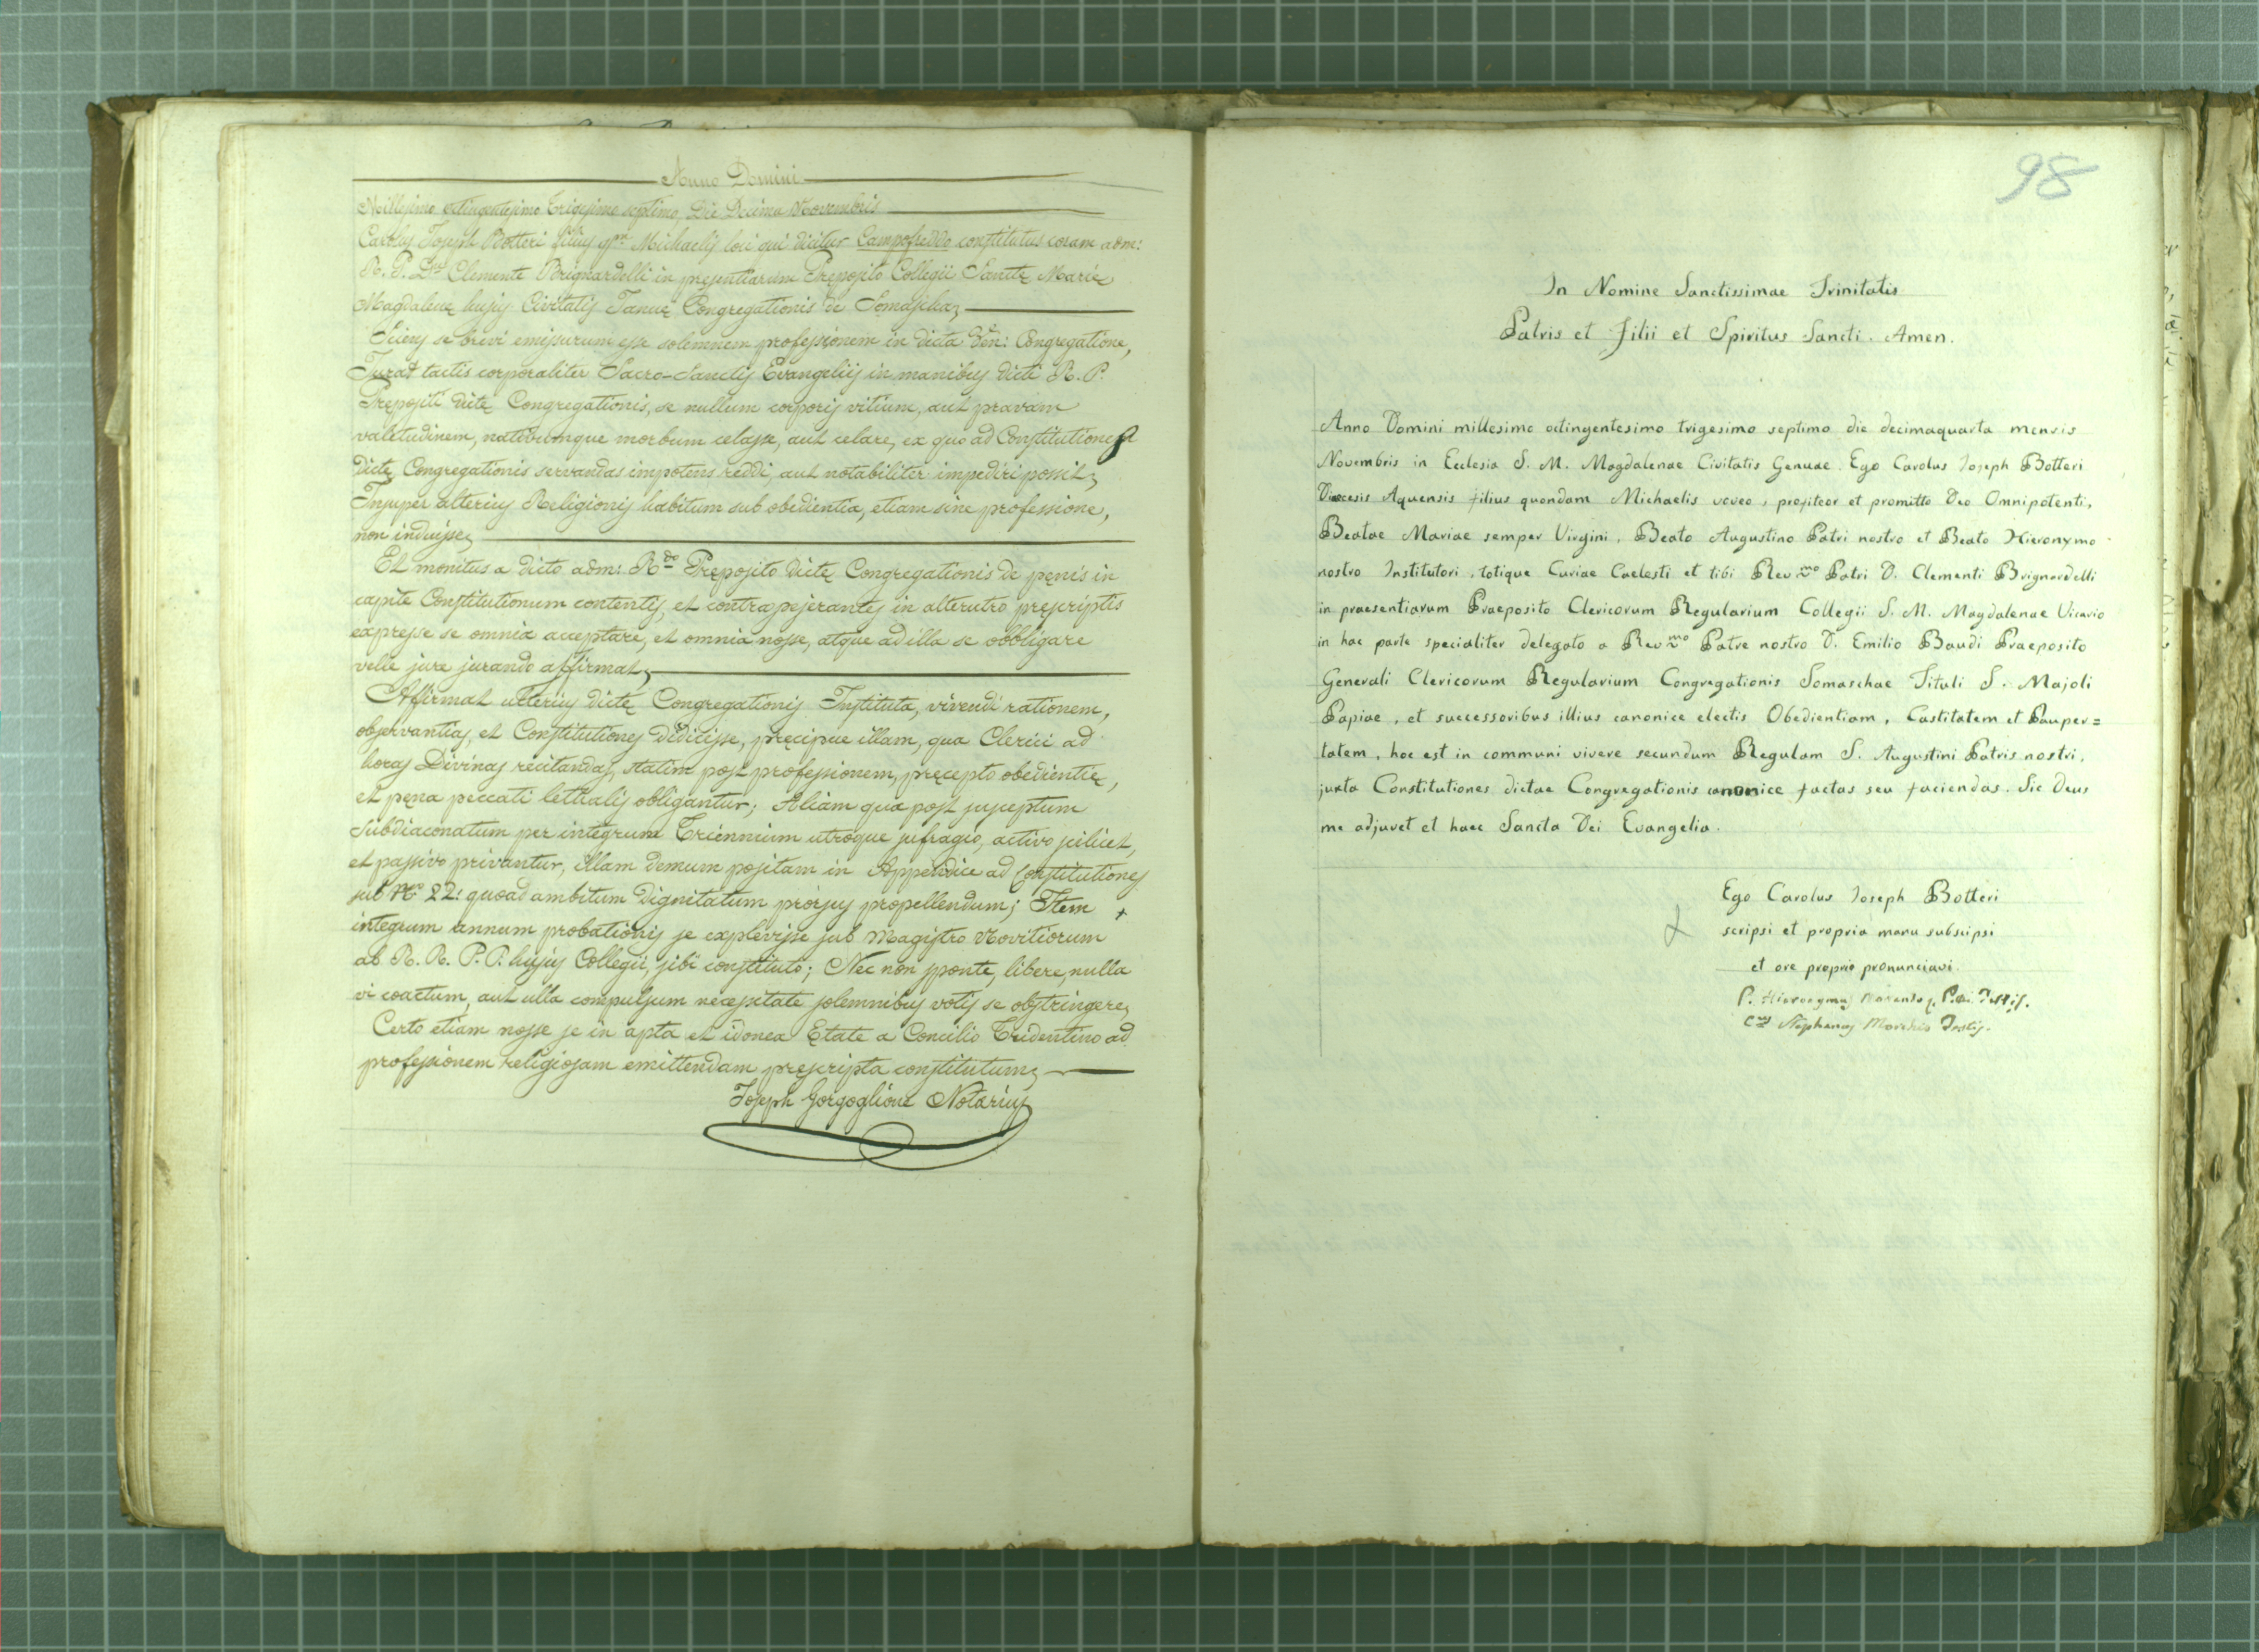 Anno Domini
Millesimo octingentesimo Trigesimo septimo Die Decima Novembris
Carolus Joseph Botteri filius qm Michaelis loci qui dicitur Campofreddo constitutus coram adm:
R. P. Dno Clemente Brignardelli in presentiarum Preposito Collegii Sanctę Marię
Magdalenę hujus Civitatis Januę Congregationis de Somascha
Sciens se brevi emissurum esse solemnem professionem in dicta Ven: Congregatione,
Jurat tactis corporaliter Sacro-Sanctis Evangeliis in manibus dicti R. P.
Prępositi dictę Congregationis, se nullum corporis vitium, aut pravam
valetudinem, nativumque morbum celasse, aut celare, ex quo ad Constitutiones
dictę Congregationis servandas impotens reddi, aut notabiliter impediri possit;
Insuper alterius Religionis habitum sub obedientia, etiam sine professione,
non induisse
Et monitus a dicto adm: Rdo Pręposito dictę Congregationis de pęnis in
capite Constitutionum contentis, et contra pejerantes in alterutro pręscriptis
expresse se omnia acceptare, et omnia nosse, atque ad illa se obbligare
velle jure jurando affirmat
Affirmat ulterius dictę Congregationis Instituta, vivendi rationem,
observantias, et Constitutiones didicisse, pręcipue illam, qua Clerici ad
horas Divinas recitandas, statim post professionem, pręcepto obedientię,
et pęna peccati lethalis obligantur; Aliam qua post susceptum
Subdiaconatum per integrum Triennium utroque sufragio, activo scilicet,
et passivo privantur, illam demum positam in Appendice ad Constitutiones
sub No 22: quoad ambitum Dignitatum prorsus propellendum; Item +
integrum annum probationis se explevisse sub Magistro Novitiorum
ab R. R. P. P. hujus Collegii, sibi constituto; Nec non sponte, libere, nulla
vi coactum, aut ulla compulsum necessitate solemnibus votis se obstringere
Certo etiam nosse se in apta et idonea Ętate a Concilio Tridentino ad
professionem religiosam emittendam pręscripta constitutum
Joseph Gorgoglione Notarius
98
In Nomine Sanctissimae Trinitatis
Patris et Filii et Spiritus Sancti. Amen.
Anno Domini millesimo octingentesimo trigesimo septimo die decimaquarta mensis
Novembris in Ecclesia S. M. Magdalenae Civitatis Genuae. Ego Carolus Joseph Botteri
Diocesis Aquensis filius quondam Michaelis voveo, profiteor et promitto Deo Omnipotenti,
Beatae Mariae semper Virgini, Beato Augustino Patri nostro et Beato Hieronymo
nostro Institutori, totique Curiae Caelesti et tibi Revmo Patri D. Clementi Brignardelli
in praesentiarum Praeposito Clericorum Regularium Collegii S. M. Magdalenae Vicario
in hac parte specialiter delegato a Revmo Patre nostro D. Emilio Baudi Praeposito
Generali Clericorum Regularium Congregationis Somaschae Tituli S. Majoli
Papiae, et successoribus illius canonice electis Obedientiam, Castitatem et Pauper=
tatem, hoc est in communi vivere secundum Regulam S. Augustini Patris nostri,
juxta Constitutiones dictae Congregationis canonice factas seu faciendas. Sic Deus
me adjuvet et haec Sancta Dei Evangelia.
Ego Carolus Joseph Botteri
scripsi et propria manu subscipsi
et ore proprio pronunciavi.
P. Hieronymus Testis.
Stephanus Testis.